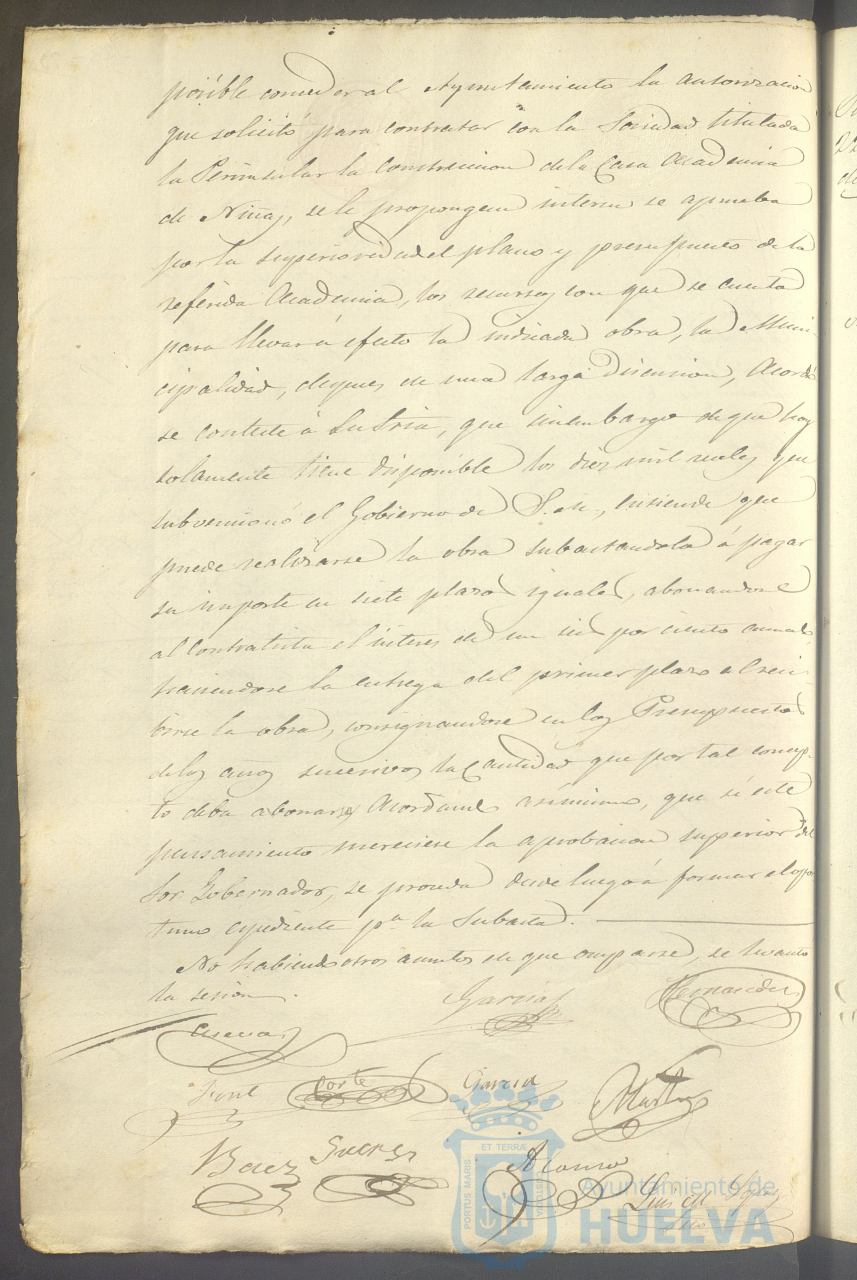 posible conceder al Ayuntamiento la autorizacion
que solicitó para contratar con la Sociedad titulada
la Peninsular la construccion de la Casa Academia
de Niñas, se le propongan interin se aprueba
por la superioridad el plano y presupuesto de la
referida Academia, los recursos con que se cuenta
para llevar á efecto la indicada obra, la Muni-
cipalidad, despues de una larga discusion, Acordó
se conteste á Su Sria, que sin embargo de que hoy
solamente tiene disponible los diez mil reales que
subvencionó el Gobierno de S. M., entiende que
puede realizarse la obra subastandola á pagar
su importe en siete plazos iguales, abonandose
al Contratista el interes de un seis por ciento anual,
haciendose la entrega del primer plazo al reci-
birse la obra, consignandose en los Presupuestos
de los años sucesivos la Cantidad que por tal concep-
to deba abonarse, Acordando asimismo, que si este
pensamiento mereciese la aprobacion superior del
Sor Gobernador, se proceda desde luego á formar el opor
tuno espediente pa. la Subasta.
No habiendo otros asuntos de que ocuparse, se levantó
la sesion.
Garcia Hernandez
Corte Garcia Martin
Baez Suarez Alonso
Luis del
PORTUS MARIS ET TERRÆ
Ayuntamiento de
HUELVA